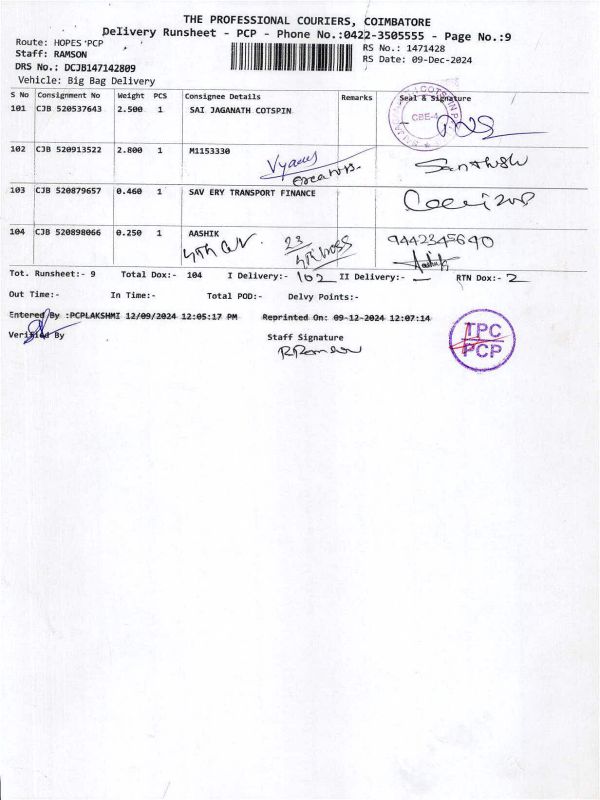 THE PROFESSIONAL COURIERS, COIMBATORE
Delivery Runsheet - PCP - Phone No.:0422-3505555 - Page No.:9
Route: HOPES PCP
RS No.: 1471428
Staff: RAMSON
RS Date: 09-Dec-2024
DRS No.: DCJB147142809
Vehicle: Big Bag Delivery
S No Consignment No Weight PCS Consignee Details Remarks Seal & Signature
101 CJB 520537643 2.500 1 SAI JAGANATH COTSPIN
CBE-4
102 CJB 520913522 2.800 1 M1153330
Santhosh
103 CJB 520879657 0.460 1 SAV ERY TRANSPORT FINANCE
104 CJB 520898066 0.250 1 AASHIK
23
9442345640
Aashik
Tot. Runsheet:- 9 Total Dox:- 104 I Delivery:- 102 II Delivery:- — RTN Dox:- 2
Out Time:- In Time:- Total POD:- Delvy Points:-
Entered By :PCPLAKSHMI 12/09/2024 12:05:17 PM Reprinted On: 09-12-2024 12:07:14
Verified By
Staff Signature
TPC
PCP